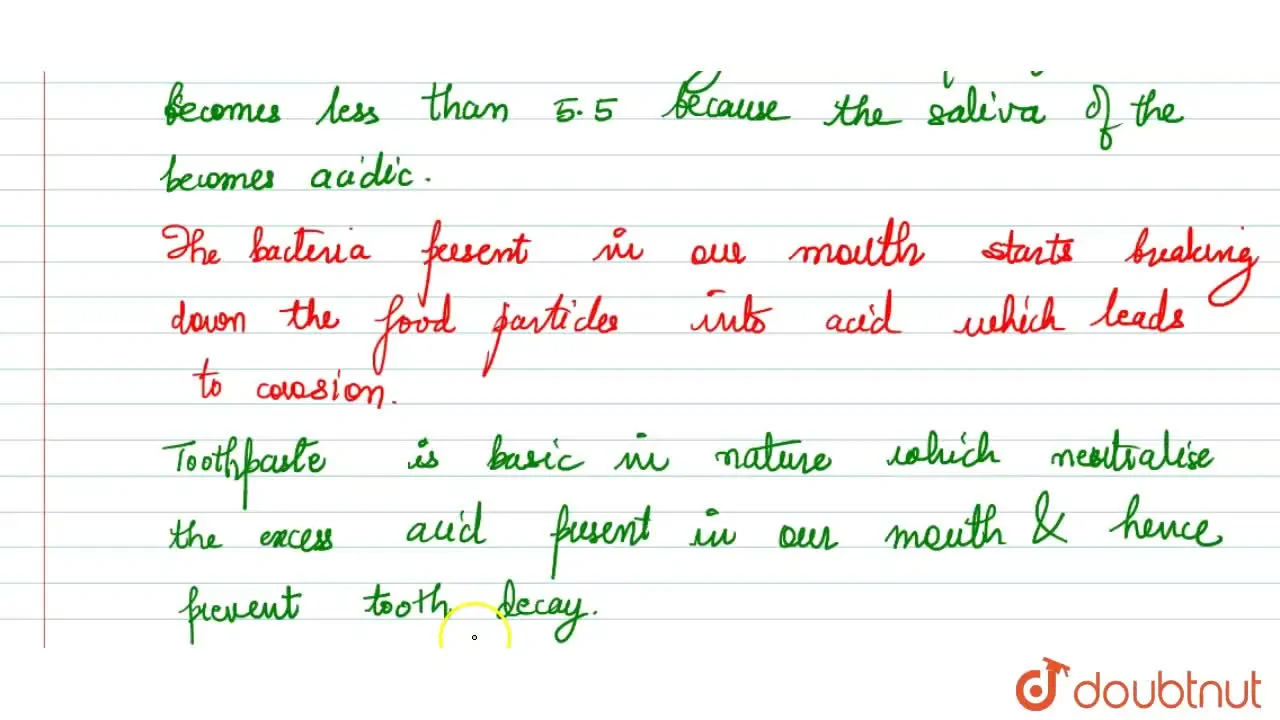 becomes less than 5.5 because the saliva of the
becomes acidic.
The bacteria present in our mouth starts breaking
down the food particles into acid which leads
to corosion.
Toothpaste is basic in nature which neutralise
the excess acid present in our mouth & hence
prevent tooth decay.
doubtnut